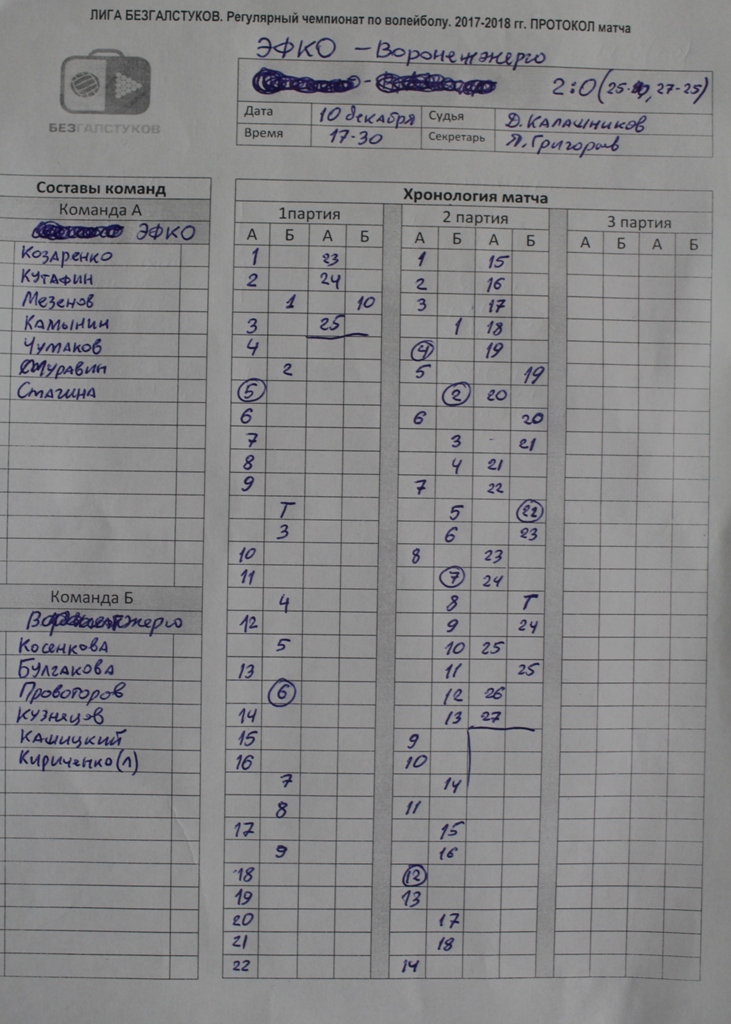 ЛИГА БЕЗГАЛСТУКОВ. Регулярный чемпионат по волейболу. 2017-2018 гг. ПРОТОКОЛ матча
БЕЗГАЛСТУКОВ
ЭФКО - Воронежэнерго
2:0 (25-10, 27-25)
Дата 10 декабря Судья Д. Калашников
Время 17-30 Секретарь Я. Григорьев
Составы команд
Команда А
ЭФКО
Козаренко
Кутафин
Мезенов
Камынин
Чумаков
Журавин
Стагина
Команда Б
Косенкова
Булгакова
Провоторов
Кузнецов
Камицкий
Кириченко (л)
Хронология матча
1партия 2 партия 3 партия
А Б А Б А Б А Б А Б А Б
1 23 1 15
2 24 2 16
1 10 3 17
3 25 1 18
4 4 19
2 5 19
5 2 20
6 6 20
7 3 - 21
8 4 21
9 7 22
Т 5 22
3 6 23
10 8 23
11 7 24
4 8 Т
12 9 24
5 10 25
13 11 25
6 12 26
14 13 27
15 9
16 10
7 14
8 11
17 15
9 16
18 12
19 13
20 17
21 18
22 14